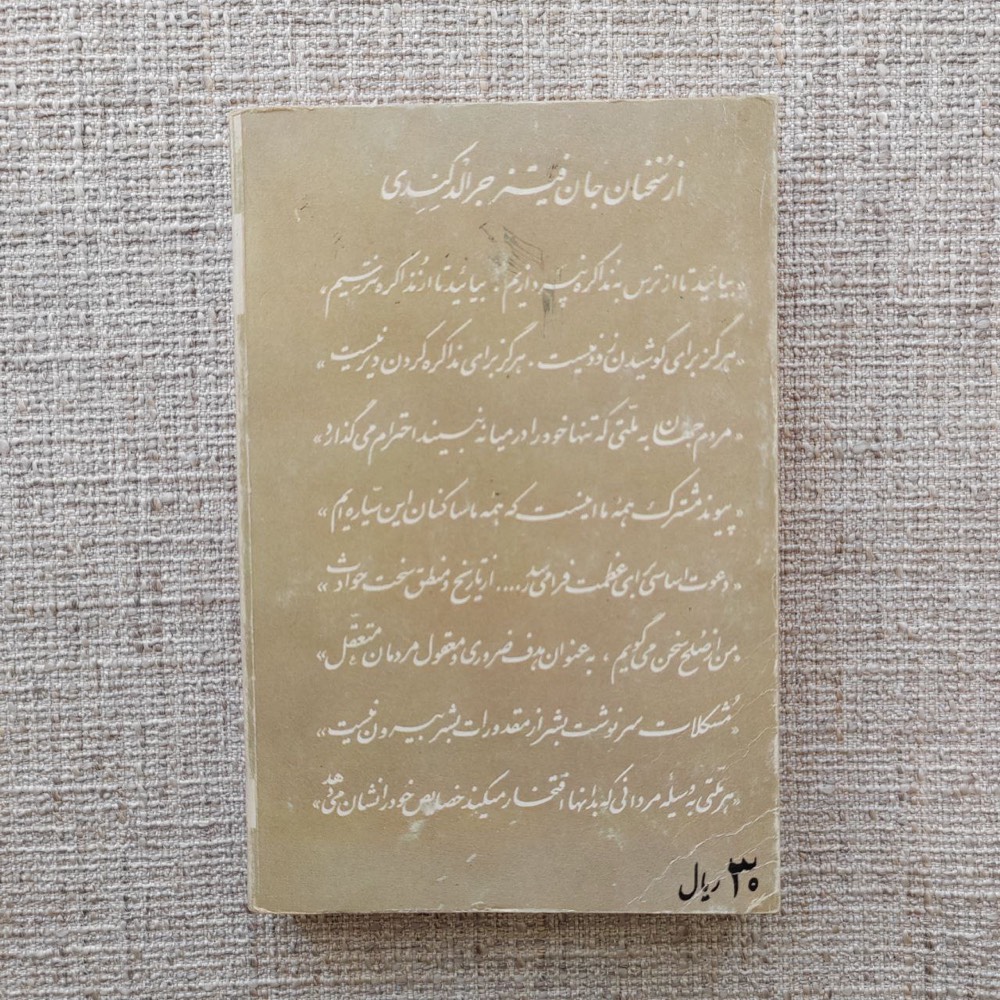 از سخنان جان فیتز جرالد کندی
«بیائید تا از ترس به مذاکره نپردازیم. بیائید تا از مذاکره نترسیم.
«هرگز برای کوشیدن زود نیست. هرگز برای مذاکره کردن دیر نیست»
«مردم جهان به ملّتی که تنها خود را در میانه نبیند احترام می گذارد»
«پیوند مشترک همهٔ ما اینست که همه ما ساکنان این سیّاره ایم»
«دعوت اساسی برای عظمت فرا می رسد..... از تاریخ و منطق سخت حوادث»
من از صلح سخن می گویم، به عنوان هدف ضروری و معقول مردمان متعقّل»
«مُشکلات سرنوشت بشر از مقدورات بشر بیرون نیست»
«هر ملّتی به وسیلهٔ مردانی که بدانها افتخار میکند خصایص خود را نشان می دهد»
۳۰ ریال